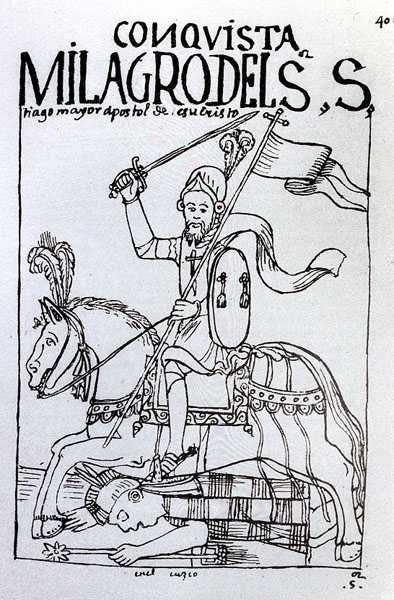 40
CONQVISTA
MILAGRODELS, S,
tiago mayor apostol de iesucristo
en el cuzco